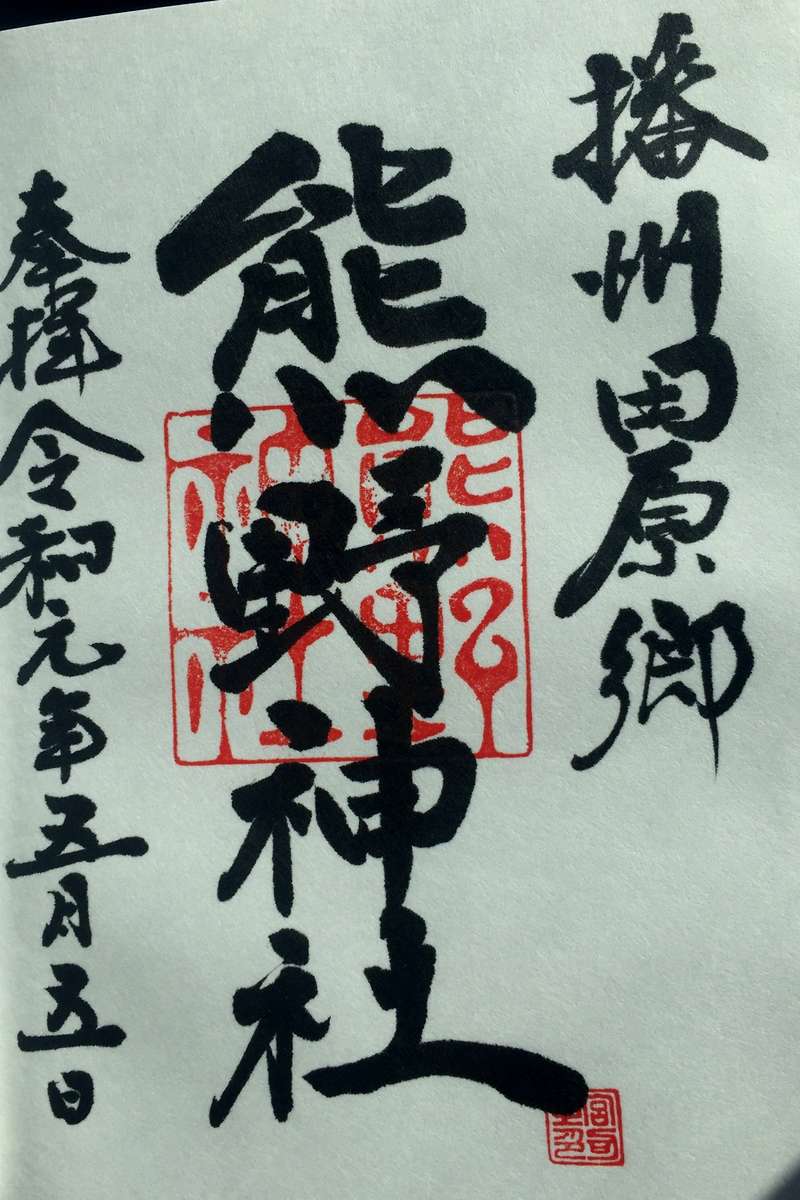 播州田原郷
熊野神社
奉拝 令和元年五月五日
熊野神社